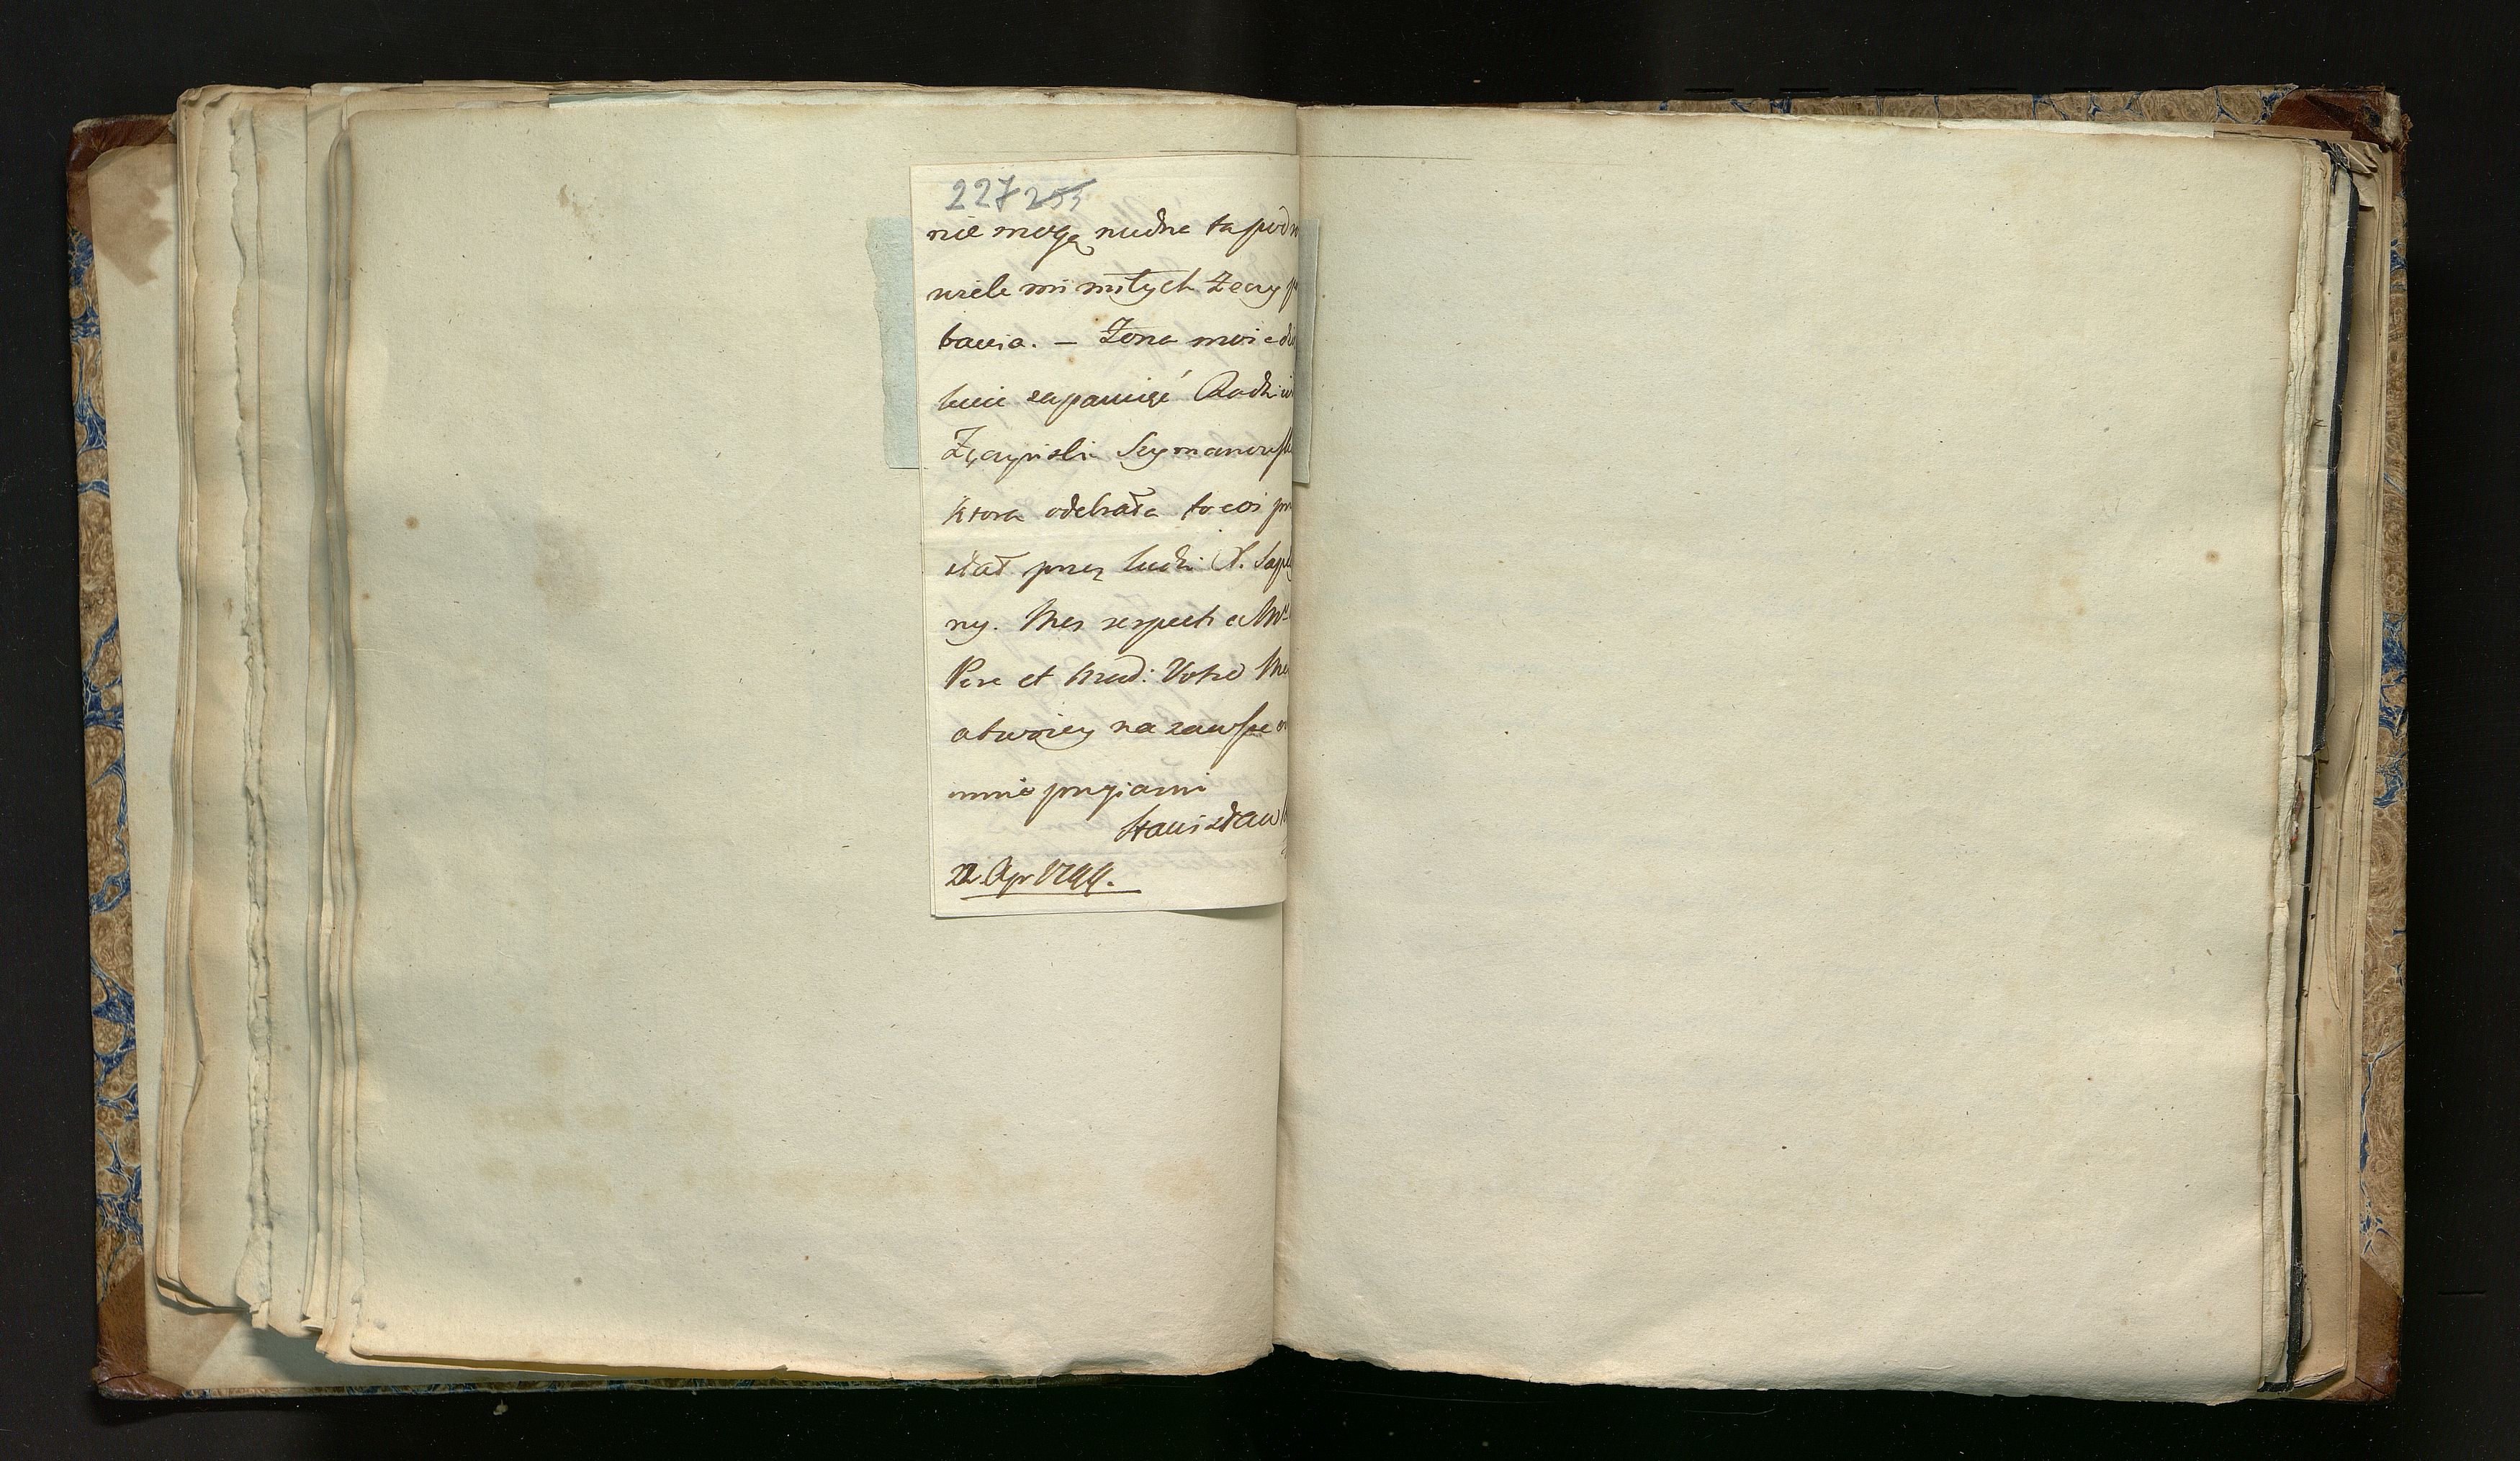 227 255
nie mogą nudne ta podr
wiele mi miłych Zeczy p
bawia. — Żona moie dzi
kuie zapamięć Radziwi
Szymanowsk
ktora odebrała to coś prz
słał przez ludzi X. Sapie
ny. Mes respects a Mr
Pere et Mad: Votre Me
a twoiey na zawsze
mnie przyiazni
Stanisław
22 Apr 1799.